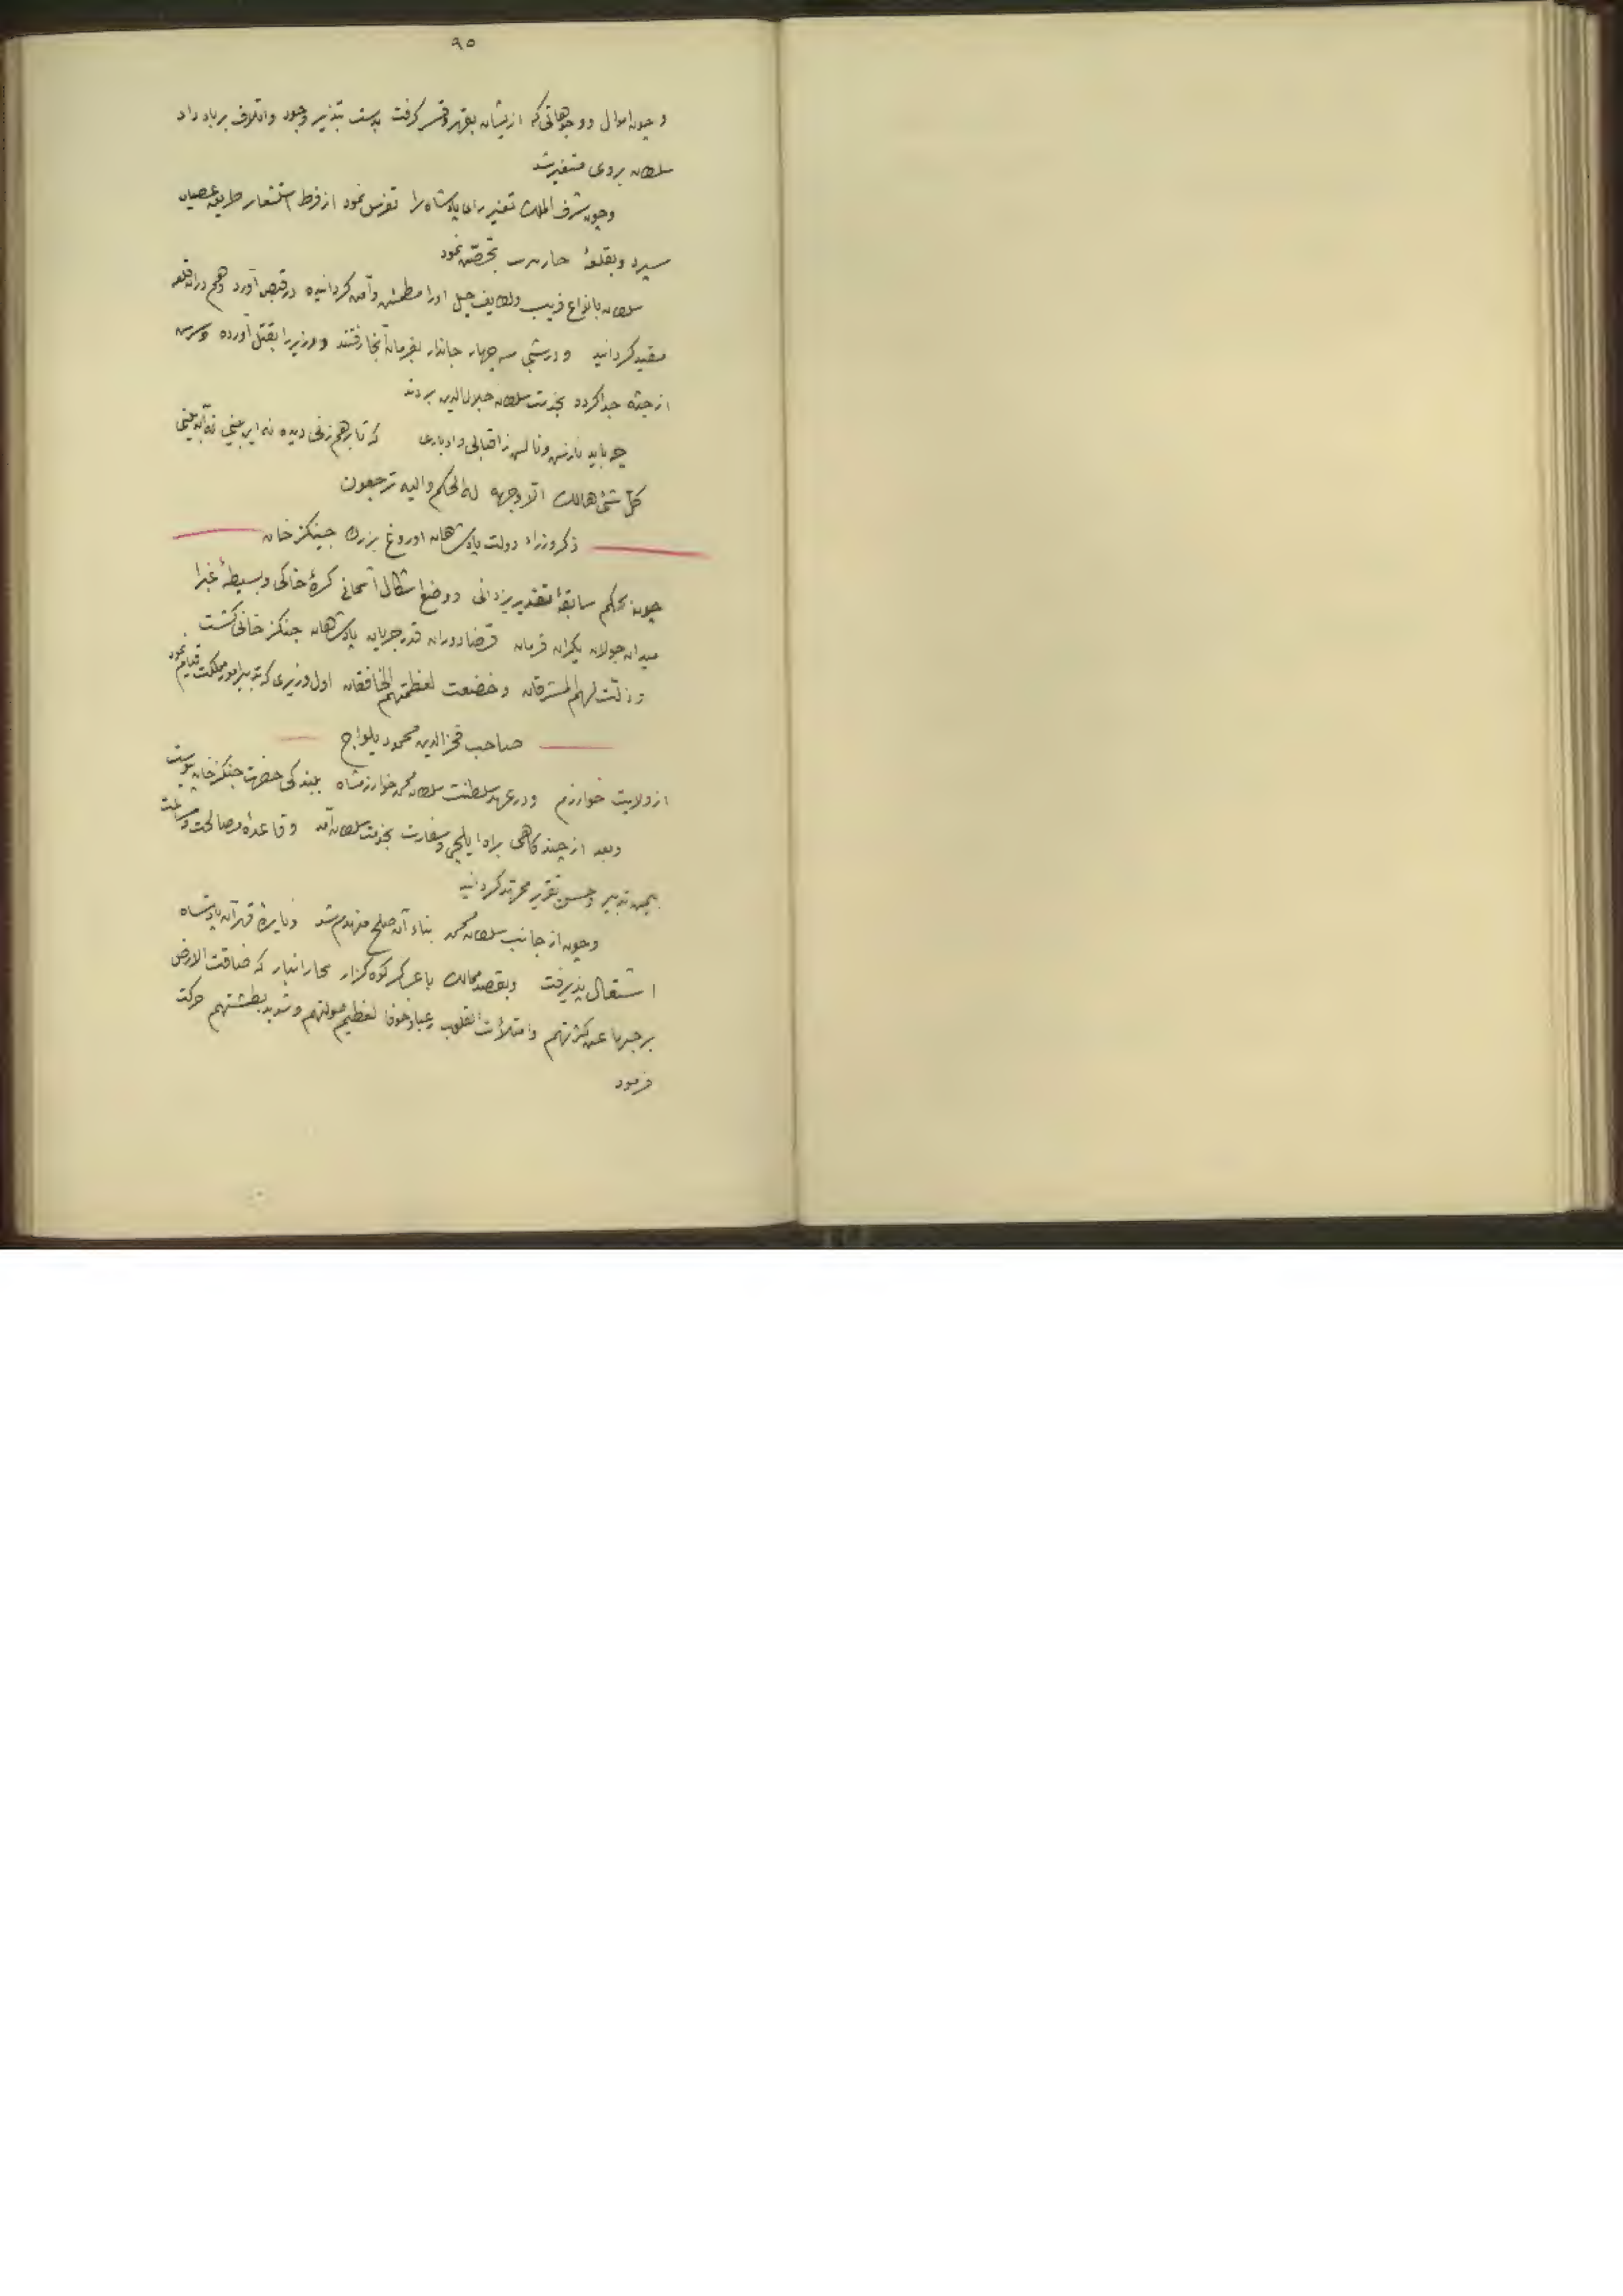 ۹۵
و چون اموال و وجوهاتی که ازیشان بقهر و قسر گرفت بدست تبذیر وجود و اتلاف بر باد داد
سلطان بروی متغیر شد
و چون شرف الملک تغییر رای پادشاه را تفرس نمود از فرط استشعار طریق عصیان
سپرد و بقلعهٔ تحصّن نمود
سلطان بانواع فریب و لطایف حیل اورا مطمئن و آمن کردانیده در قبض آورد و هم در ان قلعه
مقید کردانید و در شبی سه چهار جاندار بفرمان آنجا رفتند و وزیر را بقتل آورده و سرش
از جثه جدا کرده بخدمت سلطان جلال الدین بردند
چه باید نازش و نالش ز اقبالی و ادباری که تا بر هم زنی دیده نه این بینی نه آن بینی
کلّ شئ هالک الّا وجهه له الحکم والیه ترجعون
ذکر وزراء دولت پادشاهان اوروغ بزرک جینکز خان
چون بحکم سابقهٔ تقدیر یزدانی و وضع اشکال آسمانی کرهٔ خاکی و بسیطهٔ غبرا
میدان جولان یکران فرمان قضا دوران قدر جریان پادشاهان جنکز خانی کشت
و ذلّت لهم المشرقان و خضعت لعظمتهم الخافقان اول وزیری که تدبیر امور مملکت قیام نمود
صاحب فخر الدین محمود یلواج
از ولایت خوارزم و در عهد سلطنت سلطان محمد خوارزمشاه ببندکی حضرت جنکز خان پیوست
و بعد از چند کاهی براه ایلچی و سفارت بخدمت سلطان آمد و قاعدهٔ مصالحت و
بیمن تدبیر و حسن تقریر ممهّد کردانید
و چون از جانب سلطان محمد بناء آن صلح منهدم شد و نایرهٔ قهر آن پادشاه
اشتعال پذیرفت و بقصد ممالک با عسکر کوه کزار که ضاقت الارض
برحبها عن کثرتهم و امتلأت القلوب رعبا و خوفا لعظیم صولتهم و شدید بطشتهم حرکت
فرمود